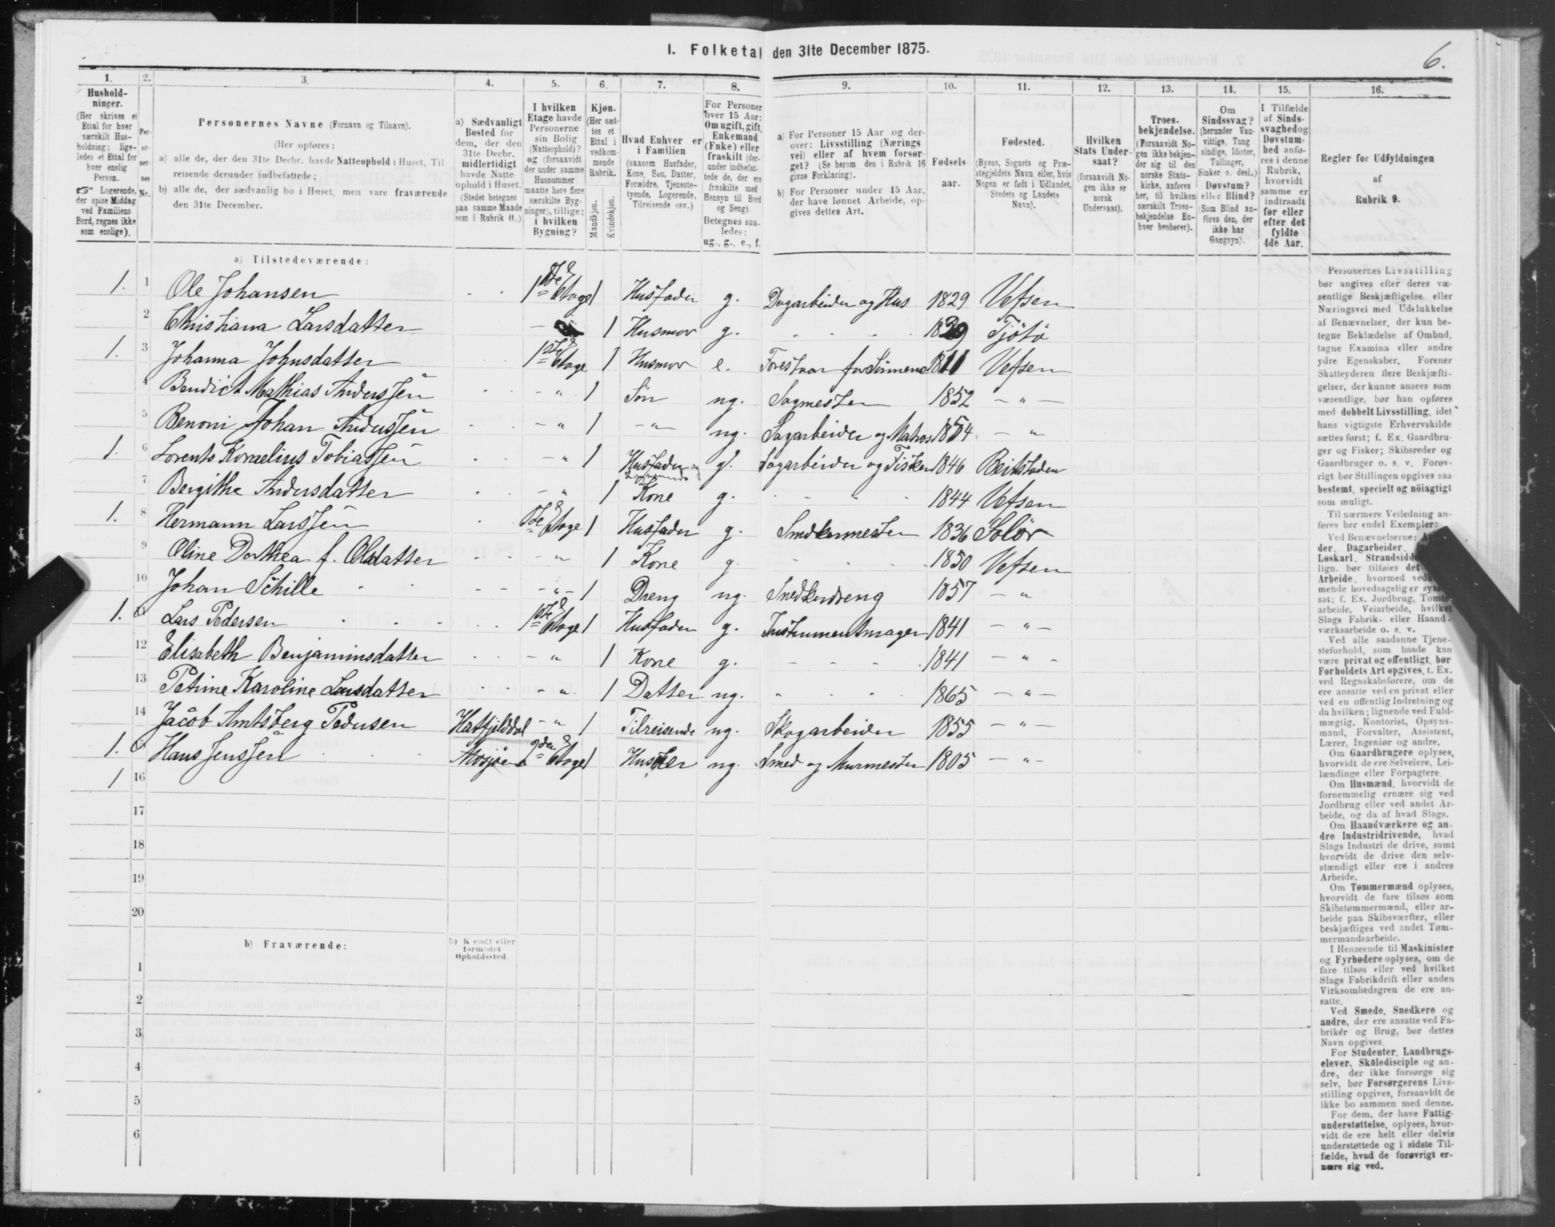 I. Folketal den 31te December 1875.
6.
1. 2. 3. 4. 5. 6. 7. 8. 9. 10. 11. 12. 13. 14. 15. 16.
Hushold-
ninger.
(Her skrives et
Ettal for hver
særskilt Hus-
holdning; lige-
ledes et Ettal for
hver enslig
Person.
☞ Logerende,
der spise Middag
ved Familiens
Bord, regnes ikke
som enslige).
Per-
so-
ner-
nes
No.
Personernes Navne (Fornavn og Tilnavn).
(Her opføres:
a) alle de, der den 31te Decbr. havde Natteophold i Huset, Til-
reisende derunder indbefattede;
b) alle de, der sædvanlig bo i Huset, men vare fraværende
den 31te December.
a) Sædvanligt
Bosted for
dem, der den
31te Decbr.
midlertidigt
havde Natte-
ophold i Huset.
(Stedet betegnes
paa samme Maade
som i Rubrik 11.)
I hvilken
Etage havde
Personerne
sin Bolig
(Natteophold)?
og (forsaavidt
der under samme
Husnummer
maatte høre flere
særskilte Byg-
ninger), tillige:
i hvilken
Bygning?
Kjøn.
(Her sæt-
tes et
Ettal i
vedkom-
mende
Rubrik.
Mandkjøn.
Kvindekjøn.
Hvad Enhver er
i Familien
(saasom Husfader,
Kone, Søn, Datter,
Forældre, Tjeneste-
tyende, Logerende,
Tilreisende osv.)
For Personer
over 15 Aar:
Om ugift, gift,
Enkemand
(Enke) eller
fraskilt (der-
under indbefat-
tede de, der ere
fraskilte med
Hensyn til Bord
og Seng).
Betegnes saa-
ledes:
ug., g., e., f.
a) For Personer 15 Aar og der-
over: Livsstilling (Nærings-
vei) eller af hvem forsør-
get? (Se herom den i Rubrik 16
givne Forklaring).
b) For Personer under 15 Aar,
der have lønnet Arbeide, op-
gives dettes Art.
Fødsels-
aar.
Fødested.
(Byens, Sognets og Præ-
stegjeldets Navn eller, hvis
Nogen er født i Udlandet,
Stedets og Landets
Navn).
Hvilken
Stats Under-
saat?
(forsaavidt No-
gen ikke er
norsk
Undersaat).
Troes-
bekjendelse.
(Forsaavidt No-
gen ikke bekjen-
der sig til den
norske Stats-
kirke, anføres
her, til hvilken
særskilt Troes-
bekjendelse En-
hver henhører).
Om
Sindssvag?
(herunder Van-
vittige, Tung-
sindige, Idioter,
Tullinger,
Sinker o. desl.)
Døvstum?
eller Blind?
(Som Blind an-
føres den, der
ikke har
Gangsyn).
I Tilfælde
af Sinds-
svaghed og
Døvstum-
hed anfø-
res i denne
Rubrik,
hvorvidt
samme er
indtraadt
før eller
efter det
fyldte
4de Aar.
Regler for Udfyldningen
af
Rubrik 9.
a) Tilstedeværende:
1. 1 Ole Johansen 1ste Etage 1 Husfader g. Dagarbeider og Hus 1829 Vefsen
2 Christiana Larsdatter 1 Husmor g. 1839 Tjötö
1. 3 Johanna Johnsdatter 1ste Etage 1 Husmor e. for Sönnene 1811 Vefsen
4 Bendict Mathias Anderssen - " 1 Sön ug. Sagmester 1852 - " -
5 Benoni Johan Anderssen - " 1 - " - ug. Sagarbeider og Matros 1854 - "
1. 6 Lorents Kornelius Tobiassen - " 1 Husfader g. Sagarbeider og Fisker 1846 Beirstaden
7 Bergithe Andersdatter - " 1 Kone g. 1844 Vefsen
1. 8 Hermann Larssen 1ste Etage 1 Husfader g. Snedkermester 1836 Solör
9 Oline Dorthea f. Olsdatter - " 1 Kone g. 1850 Vefsen
10 Johan Schille - " - 1 Dreng ug. Snedkerdreng 1857 - "
1. 11 Lars Pedersen 1ste Etage 1 Husfader g. Instrumentmager 1841 - " -
12 Elisabeth Benjaminsdatter - " 1 Kone g. 1841 - " -
13 Petrine Karoline Larsdatter - " 1 Datter ug. 1865 - " -
14 Jacob Amtsberg Pedersen Hatfjelddal - " 1 Tilreisende ug. Skogarbeider 1855 - " -
1. Hans Jenssen Mosjöen 2den Etage 1 ug. Smed og Murmester 1805 - " -
1 16
17
18
19
20
b) Fraværende:
b) Kjendt eller
formodet
Opholdssted.
1
2
3
4
5
6
Personernes Livsstilling
bør angives efter deres væ-
sentlige Beskjæftigelse eller
Næringsvei med Udelukkelse
af Benævnelser, der kun be-
tegne Beklædelse af Ombud,
tagne Examina eller andre
ydre Egenskaber. Forener
Skatteyderen flere Beskjæfti-
gelser, der kunne ansees som
væsentlige, bør han opføres
med dobbelt Livsstilling, idet
hans vigtigste Erhvervskilde
sættes først; f. Ex. Gaardbru-
ger og Fisker; Skibsreder og
Gaardbruger o. s. v. Forøv-
rigt bør Stillingen opgives saa
bestemt, specielt og nøiagtigt
som muligt.
Til nærmere Veiledning an-
føres her endel Exempler:
Ved Benævnelserne:
der, Dagarbeider,
Løskarl, Strandsidd
lign. bør tilføies det
Arbeide, hvormed ved
mende hovedsagelig er sy
sat; f. Ex. Jordbrug, Tomte-
arbeide, Veiarbeide, hvilket
Slags Fabrik- eller Haand-
værksarbeide o. s. v.
Ved alle saadanne Tjene-
steforhold, som baade kan
være privat og offentligt, bør
Forholdets Art opgives, f. Ex.
ved Regnskabsførere, om de
ere ansatte ved en privat eller
ved en offentlig Indretning og
da hvilken; lignende ved Fuld-
mægtig, Kontorist, Opsyns-
mand, Forvalter, Assistent,
Lærer, Ingeniør og andre.
Om Gaardbrugere oplyses,
hvorvidt de ere Selveiere, Lei-
lændinge eller Forpagtere.
Om Husmænd, hvorvidt de
fornemmelig ernære sig ved
Jordbrug eller ved andet Ar-
beide, og da af hvad Slags.
Om Haandværkere og an-
dre Industridrivende, hvad
Slags Industri de drive, samt
hvorvidt de drive den selv-
stændigt eller ere i andres
Arbeide.
Om Tømmermænd oplyses,
hvorvidt de fare tilsøs som
Skibstømmermænd, eller ar-
beide paa Skibsværfter, eller
beskjæftiges ved andet Tøm-
mermandsarbeide.
I Henseende til Maskinister
og Fyrbødere oplyses, om de
fare tilsøs eller ved hvilket
Slags Fabrikdrift eller anden
Virksomhedsgren de ere an-
satte.
Ved Smede, Snedkere og
andre, der ere ansatte ved Fa-
briker og Brug, bør dettes
Navn opgives.
For Studenter, Landbrugs-
elever, Skoledisciple og an-
dre, der ikke forsørge sig
selv, bør Forsørgerens Livs-
stilling opgives, forsaavidt de
ikke bo sammen med denne.
For dem, der have Fattig-
understøttelse, oplyses, hvor-
vidt de ere helt eller delvis
understøttede og i sidste Til-
fælde, hvad de forøvrigt er-
nære sig ved.